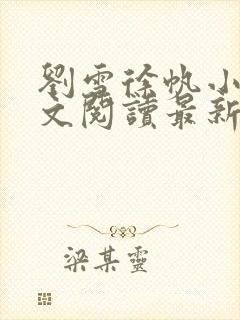 劉雪徐帆小
文閱讀最新
梁某靈